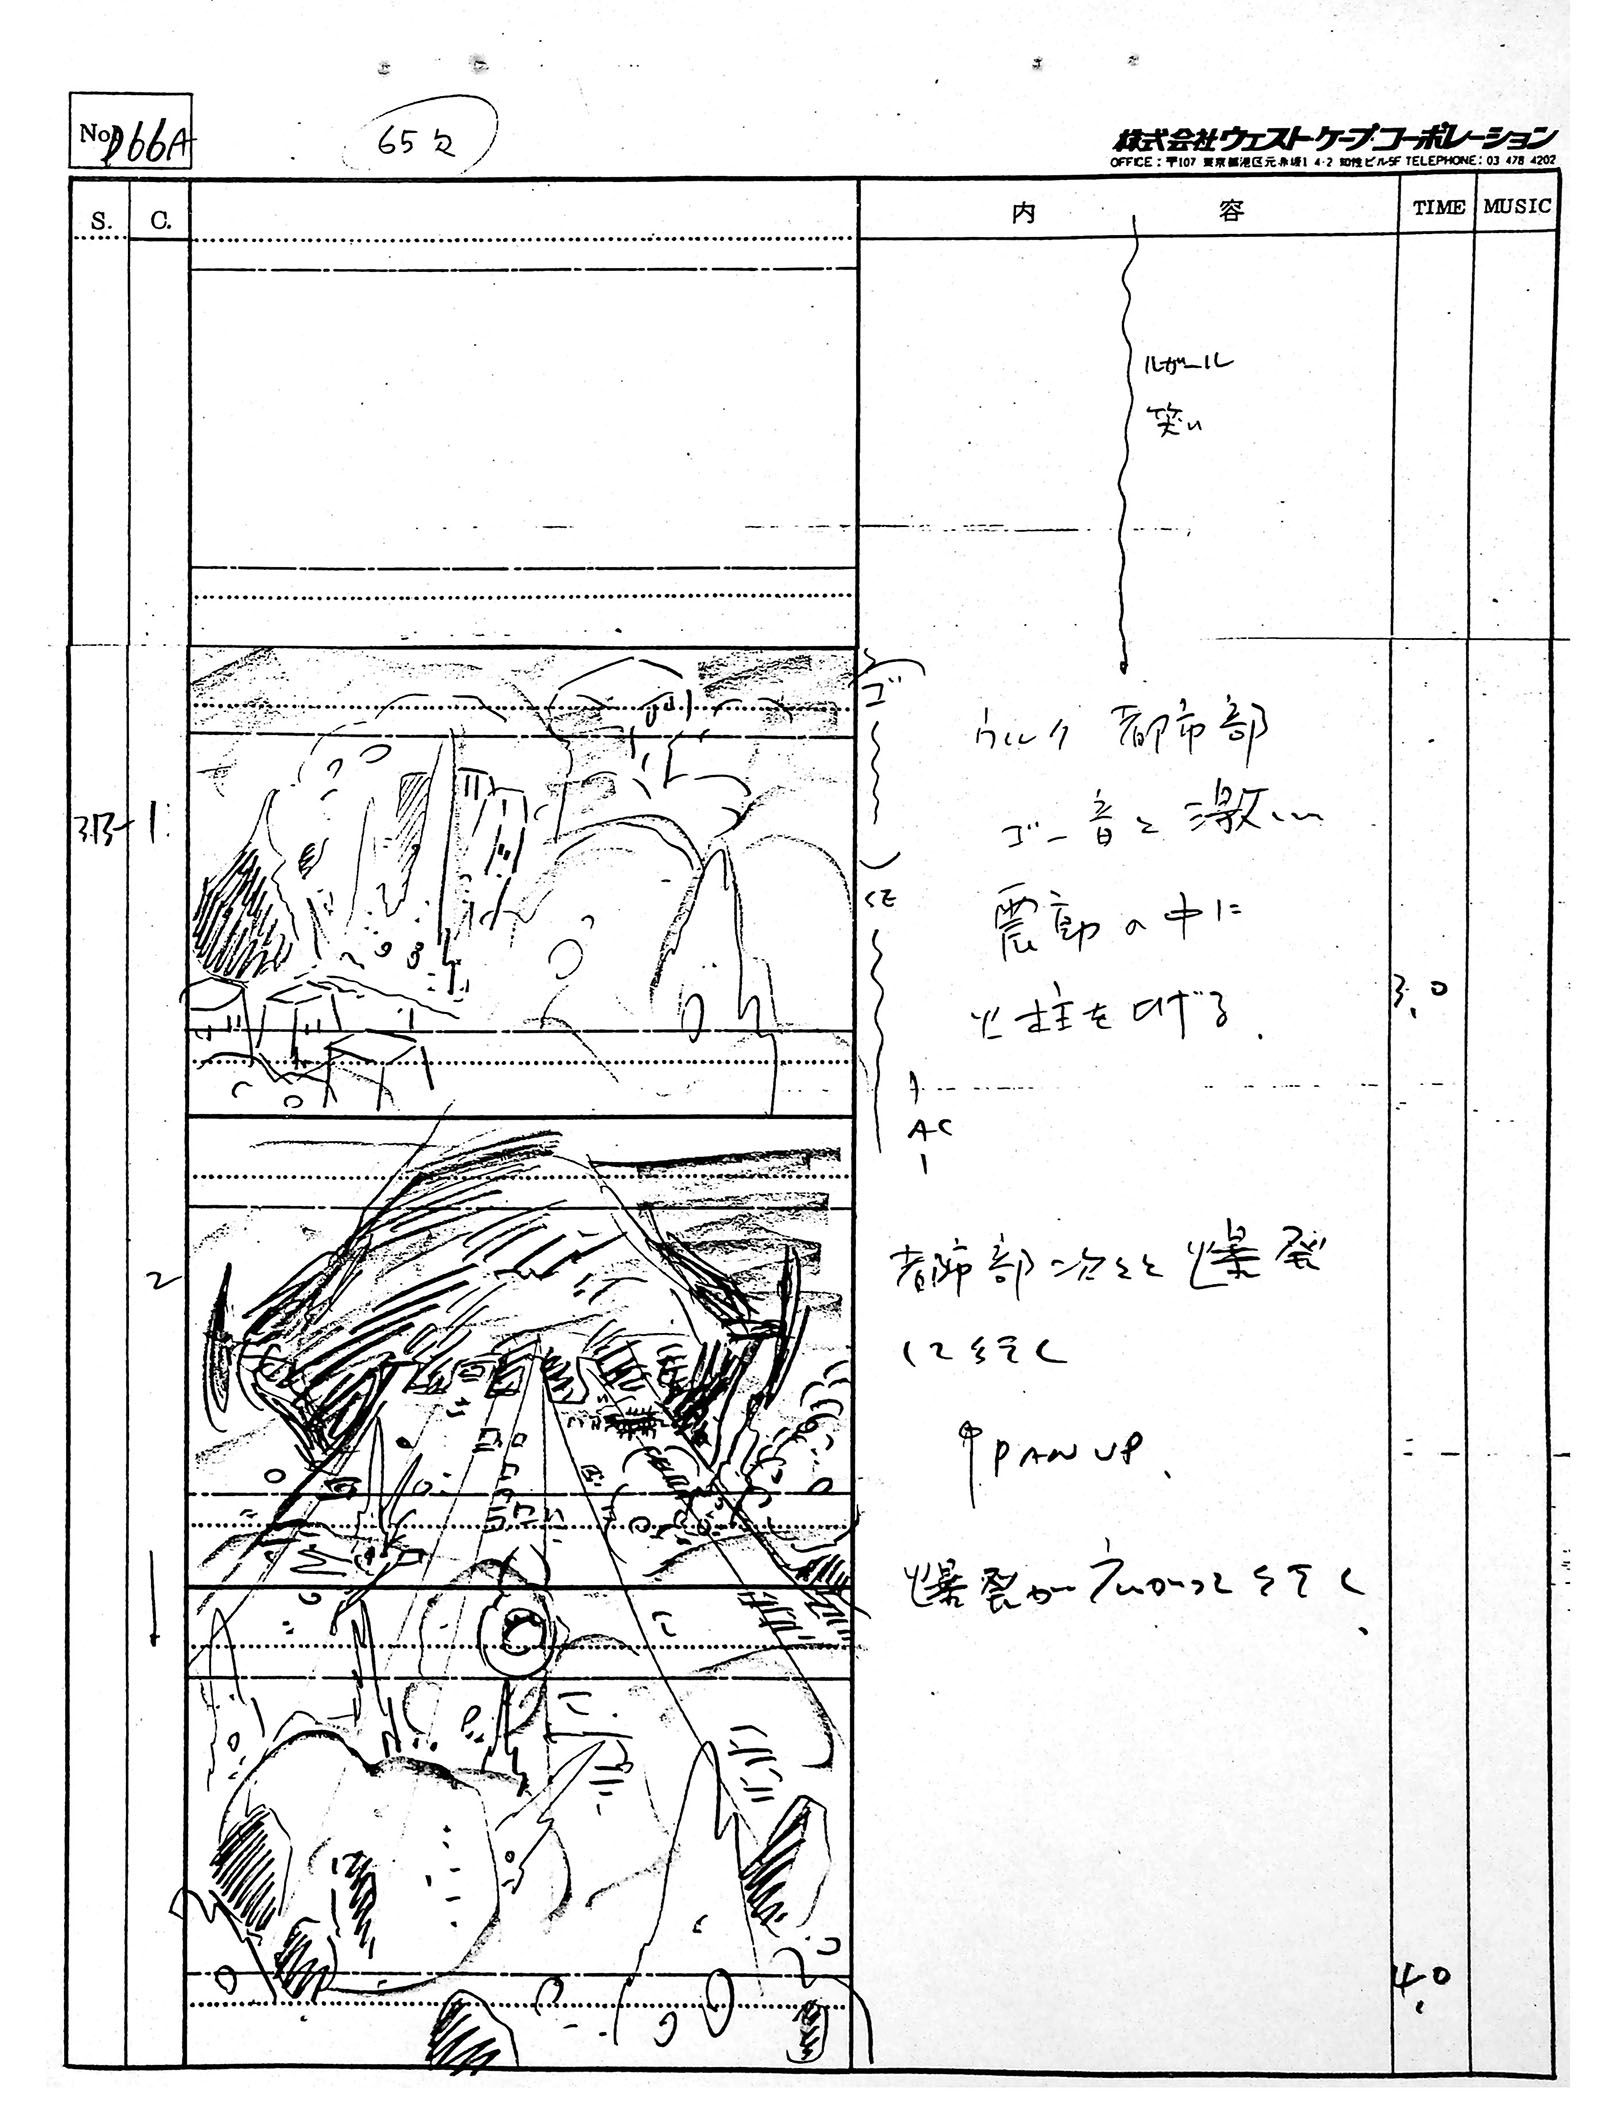 No. 066A
株式会社ウエスト・ケープ・コーポレーション
OFFICE : 〒107 東京都港区元赤坂1 4-2 知性ビル5F TELEPHONE: 03 478 4202
S. C. 内 容 TIME MUSIC
ルガール
笑い
1
ゴ
SE
ウルク 都市部
ゴー音と激しい
震動の中に
火柱を上げる.
3.0
AC
2
都市部次々と爆発
して行く
PAN UP.
爆発が広がって行く
4.0